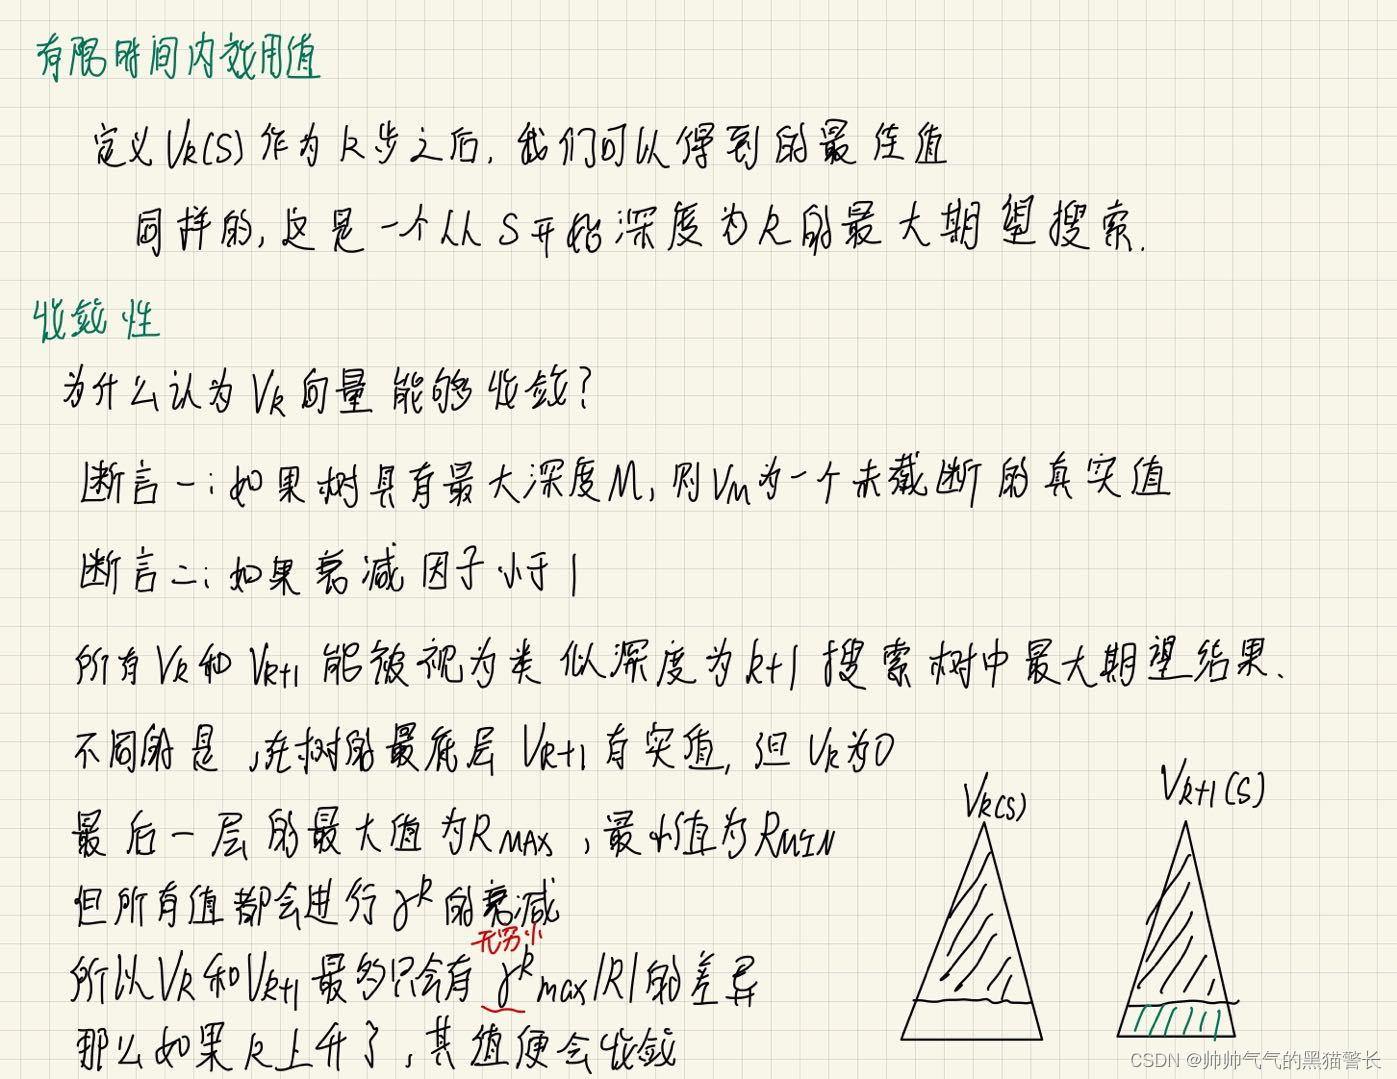 有限时间内效用值
定义Vk(S)作为k步之后,我们可以得到的最佳值
同样的,这是一个从S开始深度为k的最大期望搜索.
收敛性
为什么认为Vk向量能够收敛?
断言一:如果树具有最大深度M,则VM为一个未截断的真实值
断言二:如果衰减因子小于1
所有Vk和Vk+1能被视为类似深度为k+1搜索树中最大期望结果.
不同的是,在树的最底层Vk+1有实值,但Vk为0
最后一层的最大值为RMAX,最小值为RMIN
但所有值都会进行γ^k的衰减
无穷小
所以Vk和Vk+1最多只会有γ^k max|R|的差异
那么如果k上升了,其值便会收敛
Vk(s)
Vk+1(s)
CSDN @帅帅气气的黑猫警长